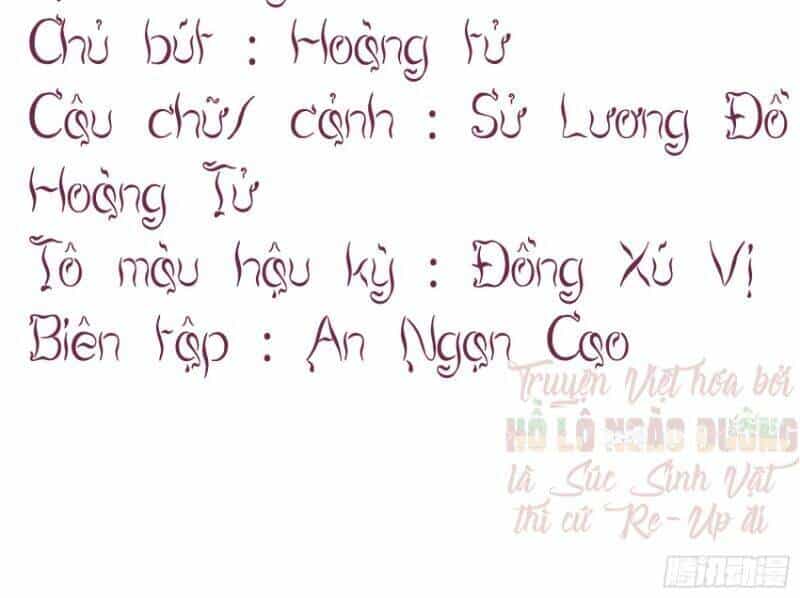 Chủ bút : Hoàng tử
Cậu chữ/ cảnh : Sử Lương Đồ
Hoàng Tử
Tô màu hậu kỳ : Đồng Xú Vị
Biên tập : An Ngạn Cao
Truyện Việt hóa bởi
HỒ LÔ NGÀO ĐƯỜNG
là Súc Sinh Vật
thì cứ Re-Up đi
腾讯动漫